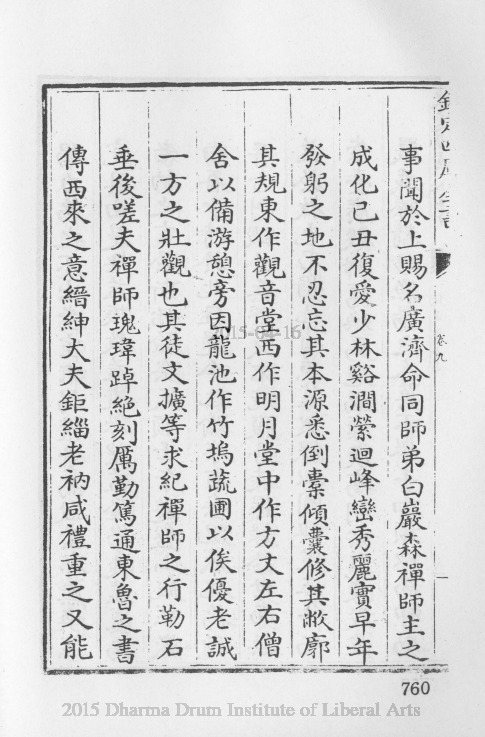 欽定四庫全書
卷九
事聞於上賜名廣濟命同師弟白巖森禪師主之
成化己丑復愛少林谿澗縈迴峰巒秀麗實早年
發躬之地不忍忘其本源悉倒橐傾囊修其敝廓
其規東作觀音堂西作明月堂中作方丈左右僧
舍以備游憩旁因龍池作竹塢蔬圃以俟優老誠
一方之壯觀也其徒文擴等求紀禪師之行勒石
垂後嗟夫禪師瑰瑋踔絕刻厲勤篤通東魯之書
傳西來之意縉紳大夫鉅緇老衲咸禮重之又能
760
2015 Dharma Drum Institute of Liberal Arts